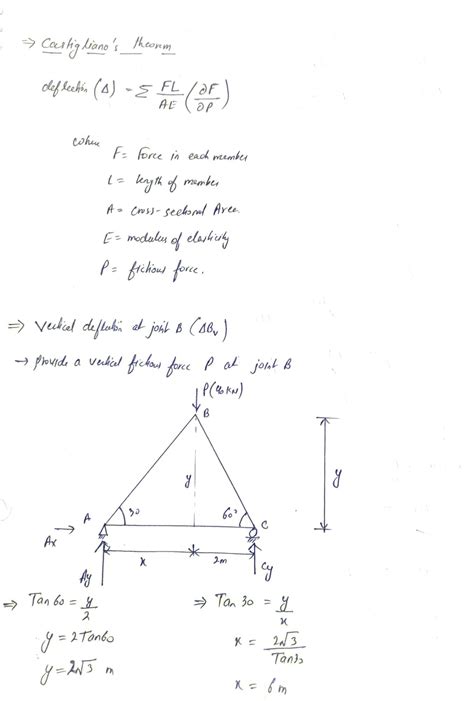 ⇒ Castigliano's theorem
deflection (Δ) = Σ FL/AE (∂F/∂P)
where
F = Force in each member
L = length of member
A = cross-sectional Area
E = modulus of elasticity
P = fictious force.
⇒ Vertical deflection at joint B (ΔBv)
→ provide a vertical fictious force P at joint B
P(40 KN)
B
y
y
A
30
60°
C
Ax
x
2m
Ay
Cy
⇒ Tan 60 = y/2
y = 2Tan60
y = 2√3 m
⇒ Tan 30 = y/x
x = 2√3/Tan30
x = 6 m